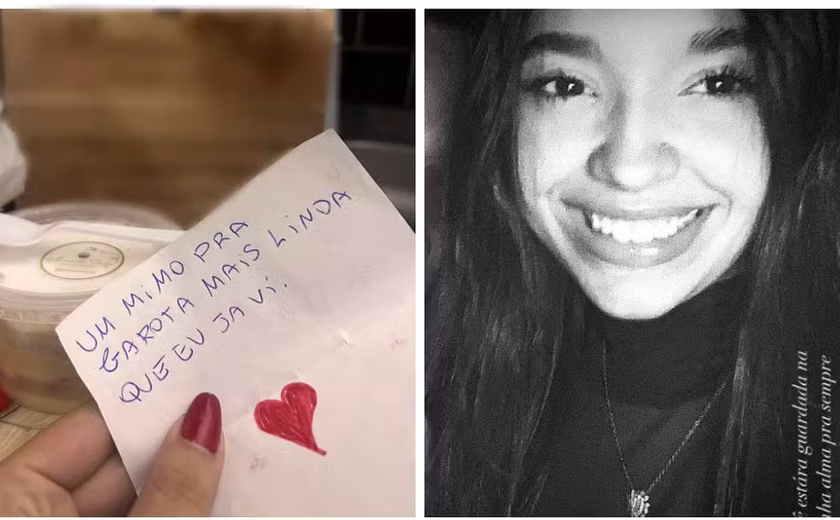 UM MIMO PRA
GAROTA MAIS LINDA
QUE EU JA VI.
estára guardada na
alma pra sempre